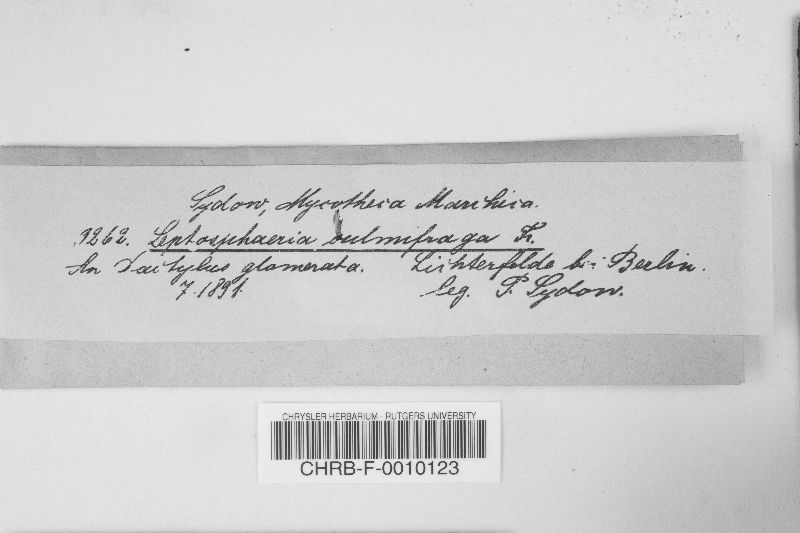 Sydow, Mycotheca Marchica.
3262. Leptosphaeria culmifraga Fr.
An Dactylus glomerata. Lichterfelde bei Berlin.
7. 1891. leg. P. Sydow.
CHRYSLER HERBARIUM - RUTGERS UNIVERSITY
CHRB-F-0010123